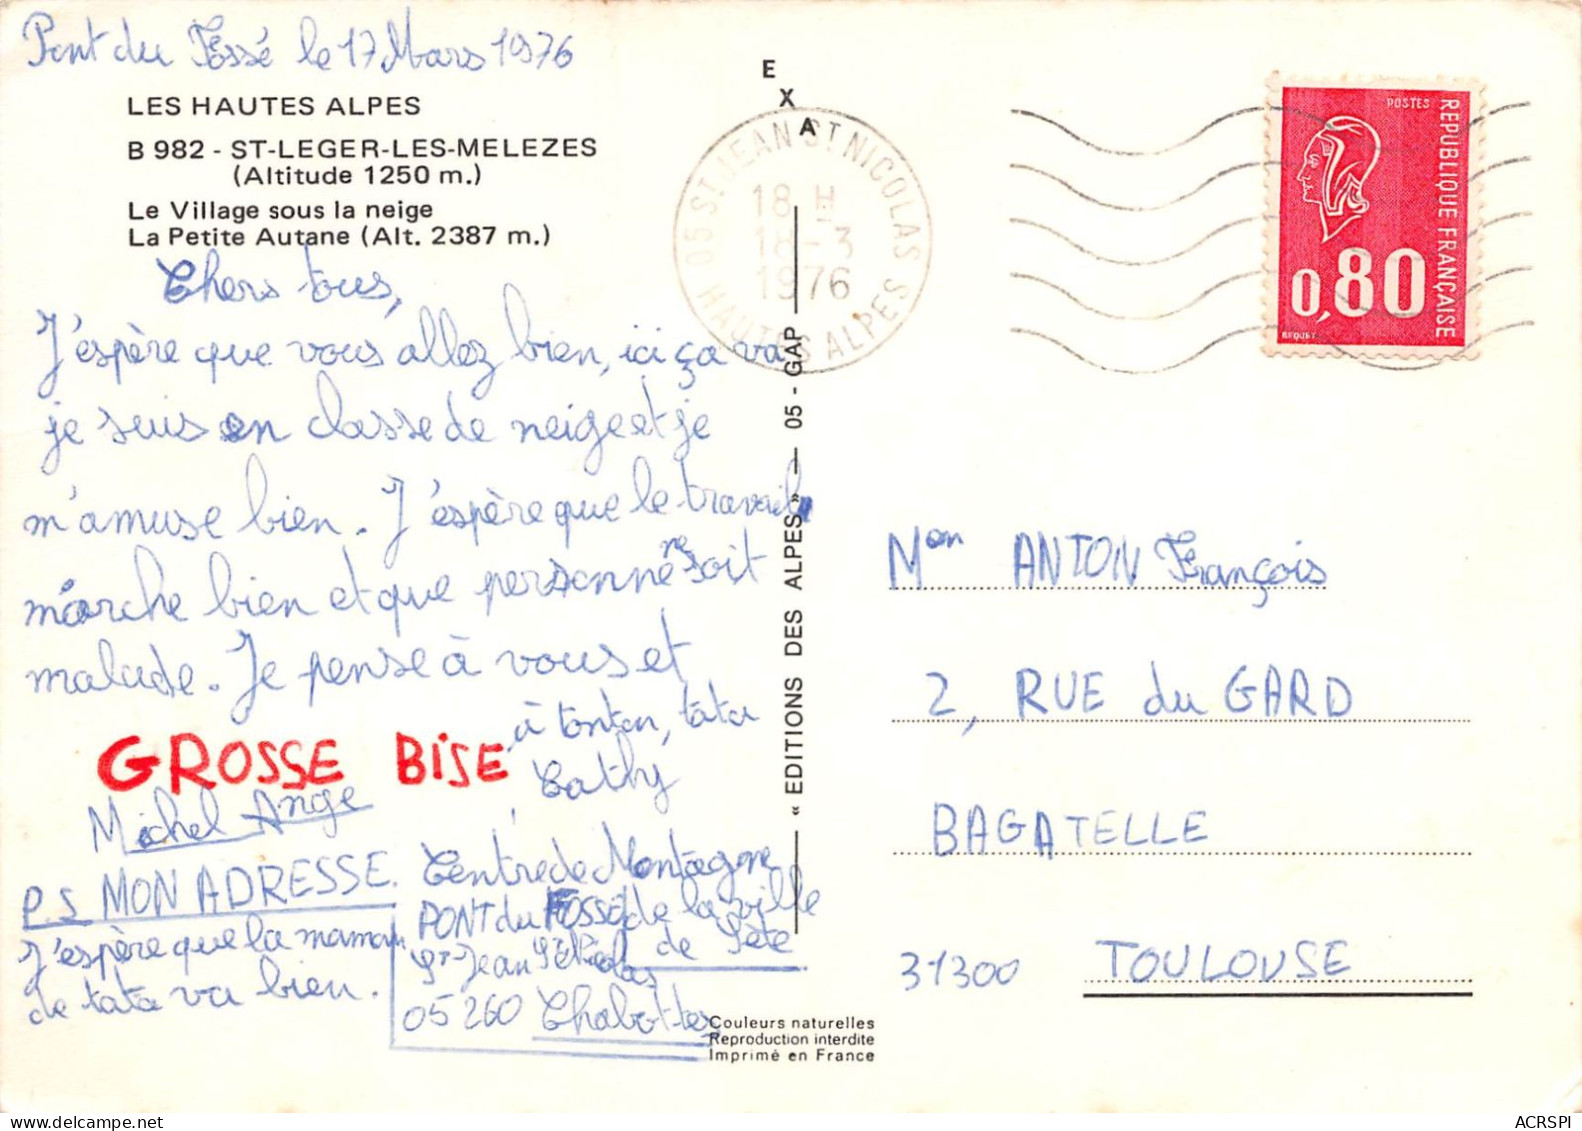 Pont du Fossé le 17 Mars 1976
LES HAUTES ALPES
B 982 - ST-LEGER-LES-MELEZES
(Altitude 1250 m.)
Le Village sous la neige
La Petite Autane (Alt. 2387 m.)
Chers tous,
J'espère que vous allez bien, ici ça va
je suis en classe de neige et je
m'amuse bien. J'espère que le travail
marche bien et que personne ne soit
malade. Je pense à vous et
à tonton, tata
Cathy
GROSSE BISE
Michel Ange
P.S MON ADRESSE.
J'espère que la maman
de tata va bien.
Centre de Montagne
PONT du FOSSÉ de la ville
de Sète
St Jean St Nicolas
05260 Chabottes
EXA
05 ST JEAN ST NICOLAS
18 H
18 - 3
1976
HAUTES ALPES
« EDITIONS DES ALPES » — 05 - GAP
Couleurs naturelles
Reproduction interdite
Imprimé en France
POSTES
REPUBLIQUE FRANÇAISE
0,80
BEQUET
Mon ANTON François
2, RUE du GARD
BAGATELLE
31300 TOULOUSE
ACRSPI